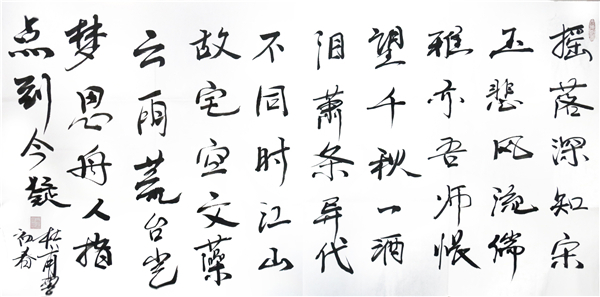 摇落深知宋
玉悲风流儒
雅亦吾师怅
望千秋一洒
泪萧条异代
不同时江山
故宅空文藻
云雨荒台岂
梦思舟人指
点到今疑
杜甫